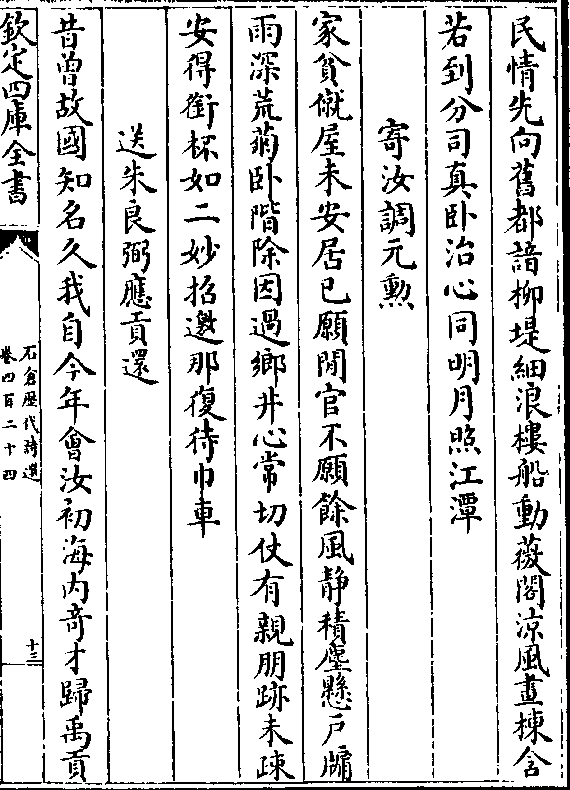 民情先向舊都諳柳堤細浪樓船動薇閣涼風畫棟含
若到分司真卧治心同明月照江潭
寄汝調元勲
家貧僦屋未安居已願閒官不願餘風静積塵懸戸牖
雨深荒菊卧階除因過鄉井心常切仗有親朋跡未疎
安得銜杯如二妙招邀那復待巾車
送朱良弼應貢還
昔曽故國知名久我自今年會汝初海内奇才歸禹貢
欽定四庫全書
石倉歴代詩選
卷四百二十四
十三